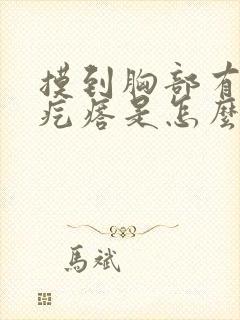 摸到胸部有
疙瘩是怎麽
馬斌